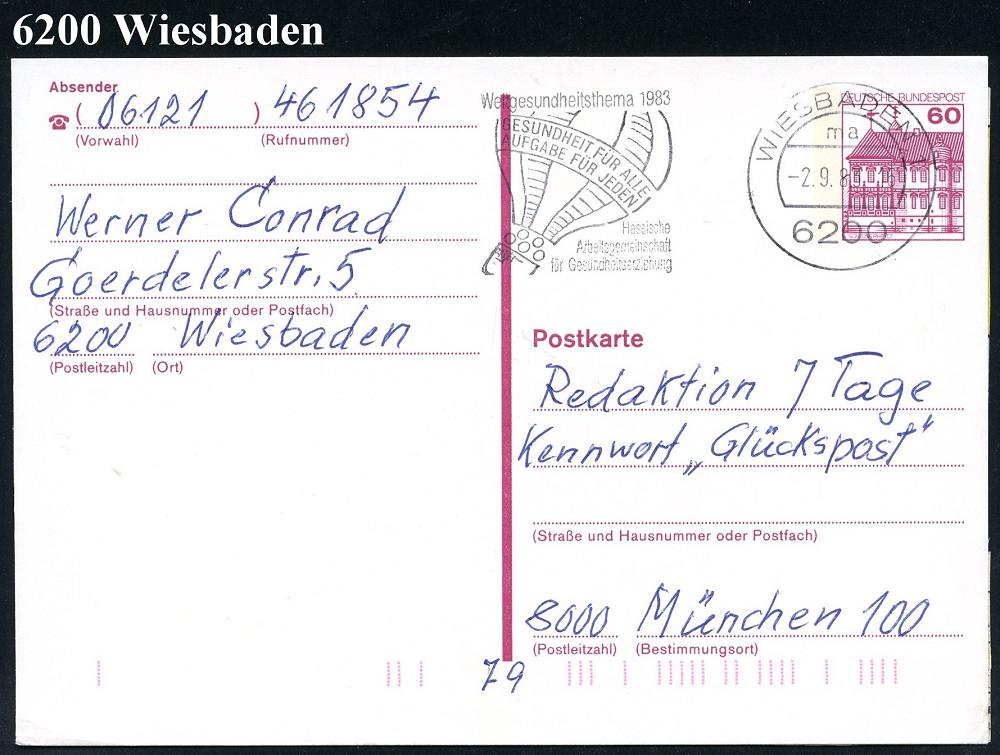 6200 Wiesbaden
Absender
( 06121 ) 461854
(Vorwahl) (Rufnummer)
Werner Conrad
Goerdelerstr. 5
(Straße und Hausnummer oder Postfach)
6200 Wiesbaden
(Postleitzahl) (Ort)
Weltgesundheitsthema 1983
GESUNDHEIT FÜR ALLE
AUFGABE FÜR JEDEN
Hessische
Arbeitsgemeinschaft
für Gesundheitserziehung
DEUTSCHE BUNDESPOST
60
WIESBADEN 1
ma
-2.9.83
6200
Postkarte
Redaktion 7 Tage
Kennwort „Glückspost"
(Straße und Hausnummer oder Postfach)
8000 München 100
(Postleitzahl) (Bestimmungsort)
79